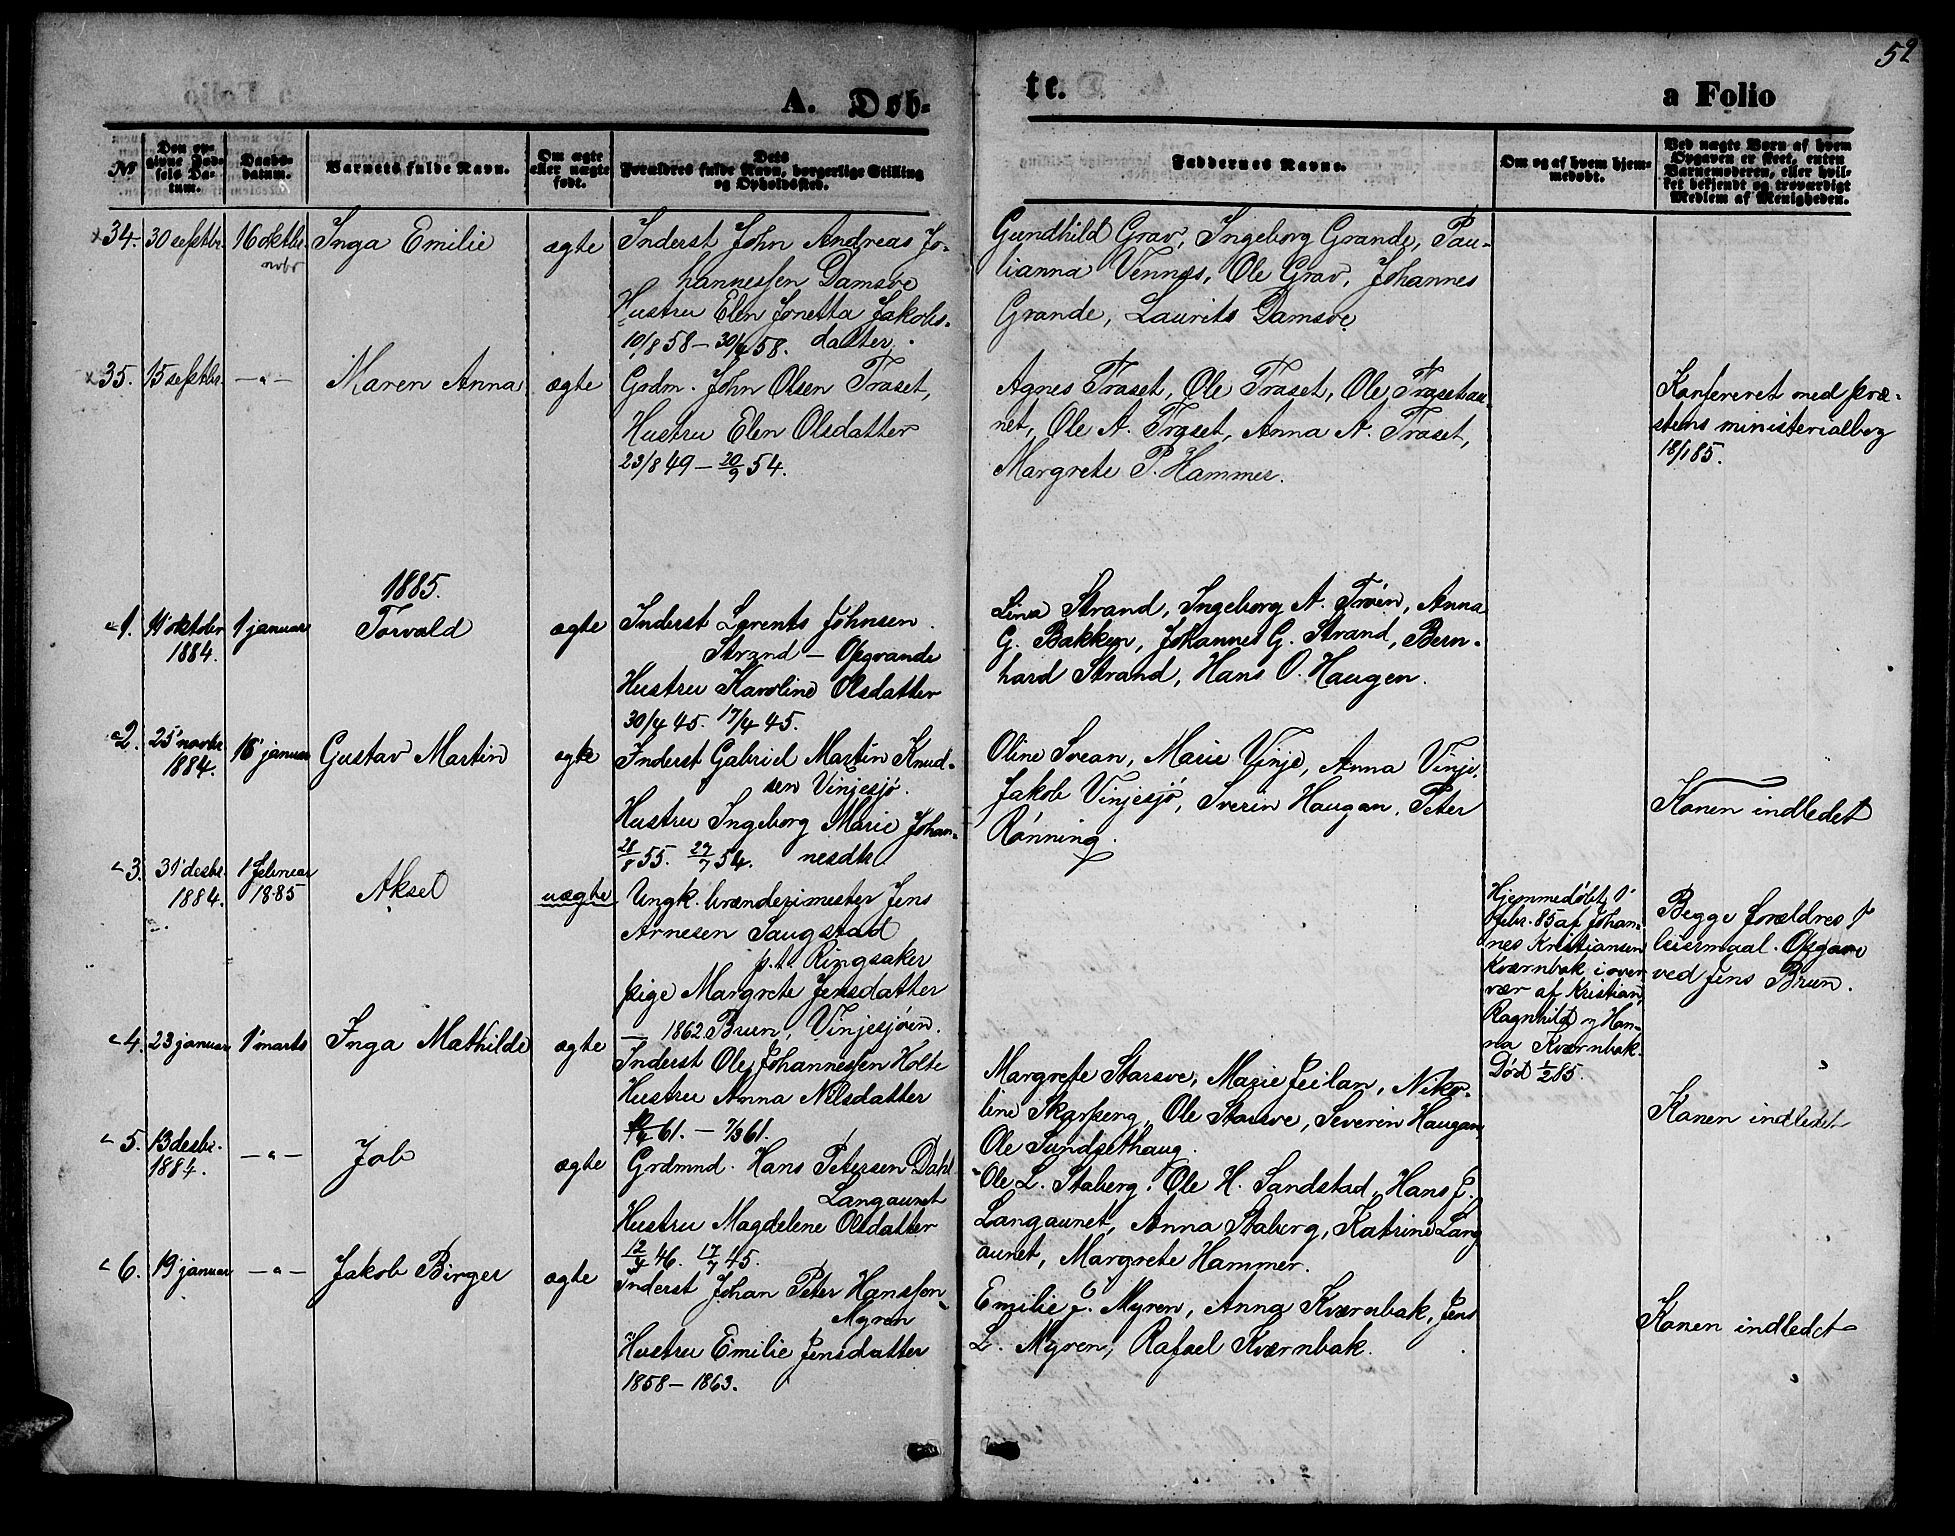 52
A. Døb-
te.
a Folio
No
Den op-
givne Fød-
sels Da-
tum.
Daabs-
datum.
Barnets fulde Navn.
Om ægte
eller uægte
født.
Dets
Forældres fulde Navn, borgerlige Stilling
og Opholdssted.
Faddernes Navne.
Om og af hvem hjem-
medøbt.
Ved uægte Børn af hvem
Opgaven er skeet, enten
Barnemoderen, eller hvil-
ket bekjendt og troværdigt
Medlem af Menigheden.
34. 30 septbr. 16 oktbr. Inga Emilie ægte
novbr
Inderst John Andreas Jo-
hannessen Damsve
Hustru Elen Jonetta Jakobs-
10/8 58 – 30/4 58. datter.
Gundhild Grav, Ingeborg Grande, Pau-
lianna Vennes, Ole Grav, Johannes
Grande, Laurits Damsve
35. 15 septbr. –"– Maren Anna ægte
Gdm. John Olsen Traset,
Hustru Elen Olsdatter
23/8 49 – 20/9 54.
Agnes Traset, Ole Traset, Ole Trasetau-
net, Ole A. Traset, Anna A. Traset,
Margrete P. Hammer.
Konfereret med præ-
stens ministerialbog
18/1 85.
1885.
1. 11 oktober 1 januar Torvald ægte
1884.
Inderst Lorents Johnsen
Strand – Opgrande
Hustru Karoline Olsdatter
30/4 45. 17/4 45.
Lina Strand, Ingeborg A. Trøen, Anna
G. Bakken, Johannes G. Strand, Bern-
hard Strand, Hans O. Haugen.
2. 25 novbr. 18 januar Gustav Martin ægte
1884.
Inderst Gabriel Martin Knud-
sen Vinjesjø.
Hustru Ingeborg Marie Johan-
28/8 55. 27/7 54. nesdtr
Oline Svean, Marie Vinje, Anna Vinje
Jakob Vinjesjø, Sverin Haugan, Peter
Rønning.
Konen indledet
3. 31 desbr. 1 februar Aksel uægte
1884. 1885
Ungk. brænderimester Jens
Arnesen Saugstad
p.t. Ringsaker
pige Margrete Jensdatter
– 1862. Brun, Vinjesjøen.
Hjemmedøbt 1
febr. 85 af Johan-
nes Kristiansen
Kværnbak i over
vær af Kristian,
Ragnhild og Han-
na Kværnbak.
Død 1/2 85.
Begge forældres 1
leiermaal. Opgave
ved Jens Brun.
4. 23 januar 1 marts Inga Mathilde ægte
Inderst Ole Johannessen Holte
Hustru Anna Nilsdatter
61. – 7/3 61.
Margrete Starsve, Marie Jeilan, Niko-
line Skarpeng, Ole Starsve, Severin Haugan
Ole Sundsethaug.
Konen indledet
5. 13 desbr. –"– Job ægte
1884.
Grdmnd. Hans Petersen Dahl
Langaunet
Hustru Magdelene Olsdatter
12/4 46. 17/7 45.
Ole L. Staberg. Ole H. Sandstad, Hans J.
Langaunet, Anna Staberg, Katrine Lang
aunet, Margrete Hammer.
6. 19 januar –"– Jakob Birger ægte
Inderst Johan Peter Hanssen
Myren
Hustru Emilie Jensdatter
1858 – 1863.
Emilie J. Myren, Anna Kværnbak, Jens
L. Myren, Rafael Kværnbak.
Konen indledet